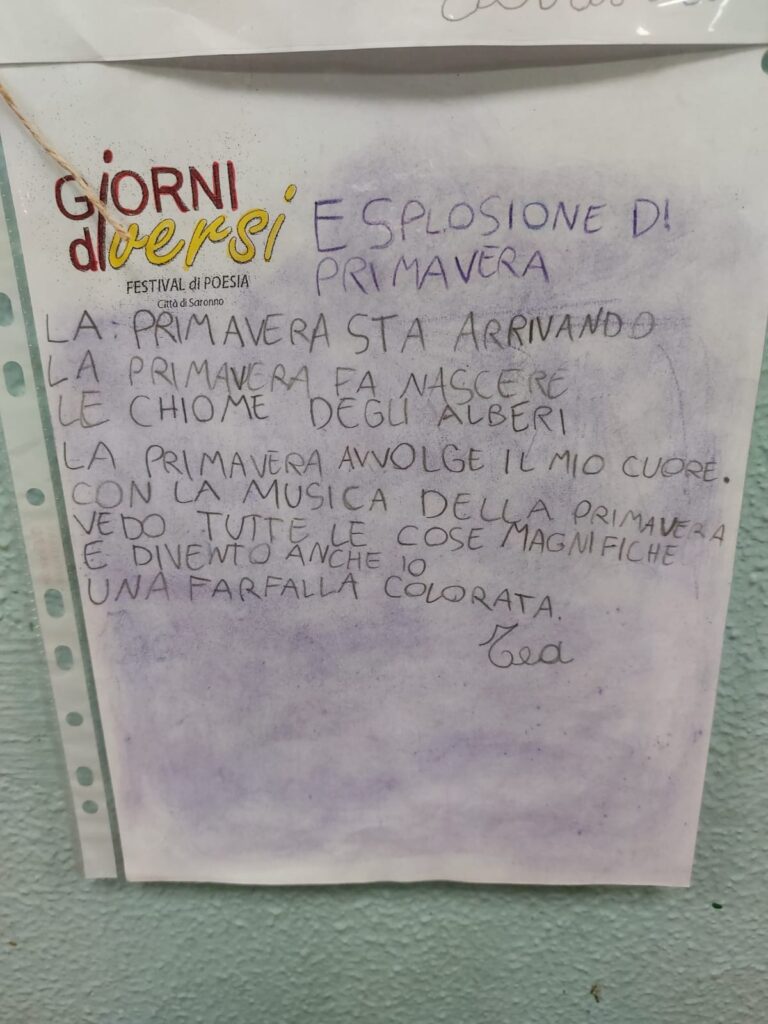 GiORNI
diversi
FESTIVAL di POESIA
Città di Saronno
ESPLOSIONE DI
PRIMAVERA
LA PRIMAVERA STA ARRIVANDO
LA PRIMAVERA FA NASCERE
LE CHIOME DEGLI ALBERI
LA PRIMAVERA AVVOLGE IL MIO CUORE.
CON LA MUSICA DELLA PRIMAVERA
VEDO TUTTE LE COSE MAGNIFICHE
E DIVENTO ANCHE IO
UNA FARFALLA COLORATA.
Tea